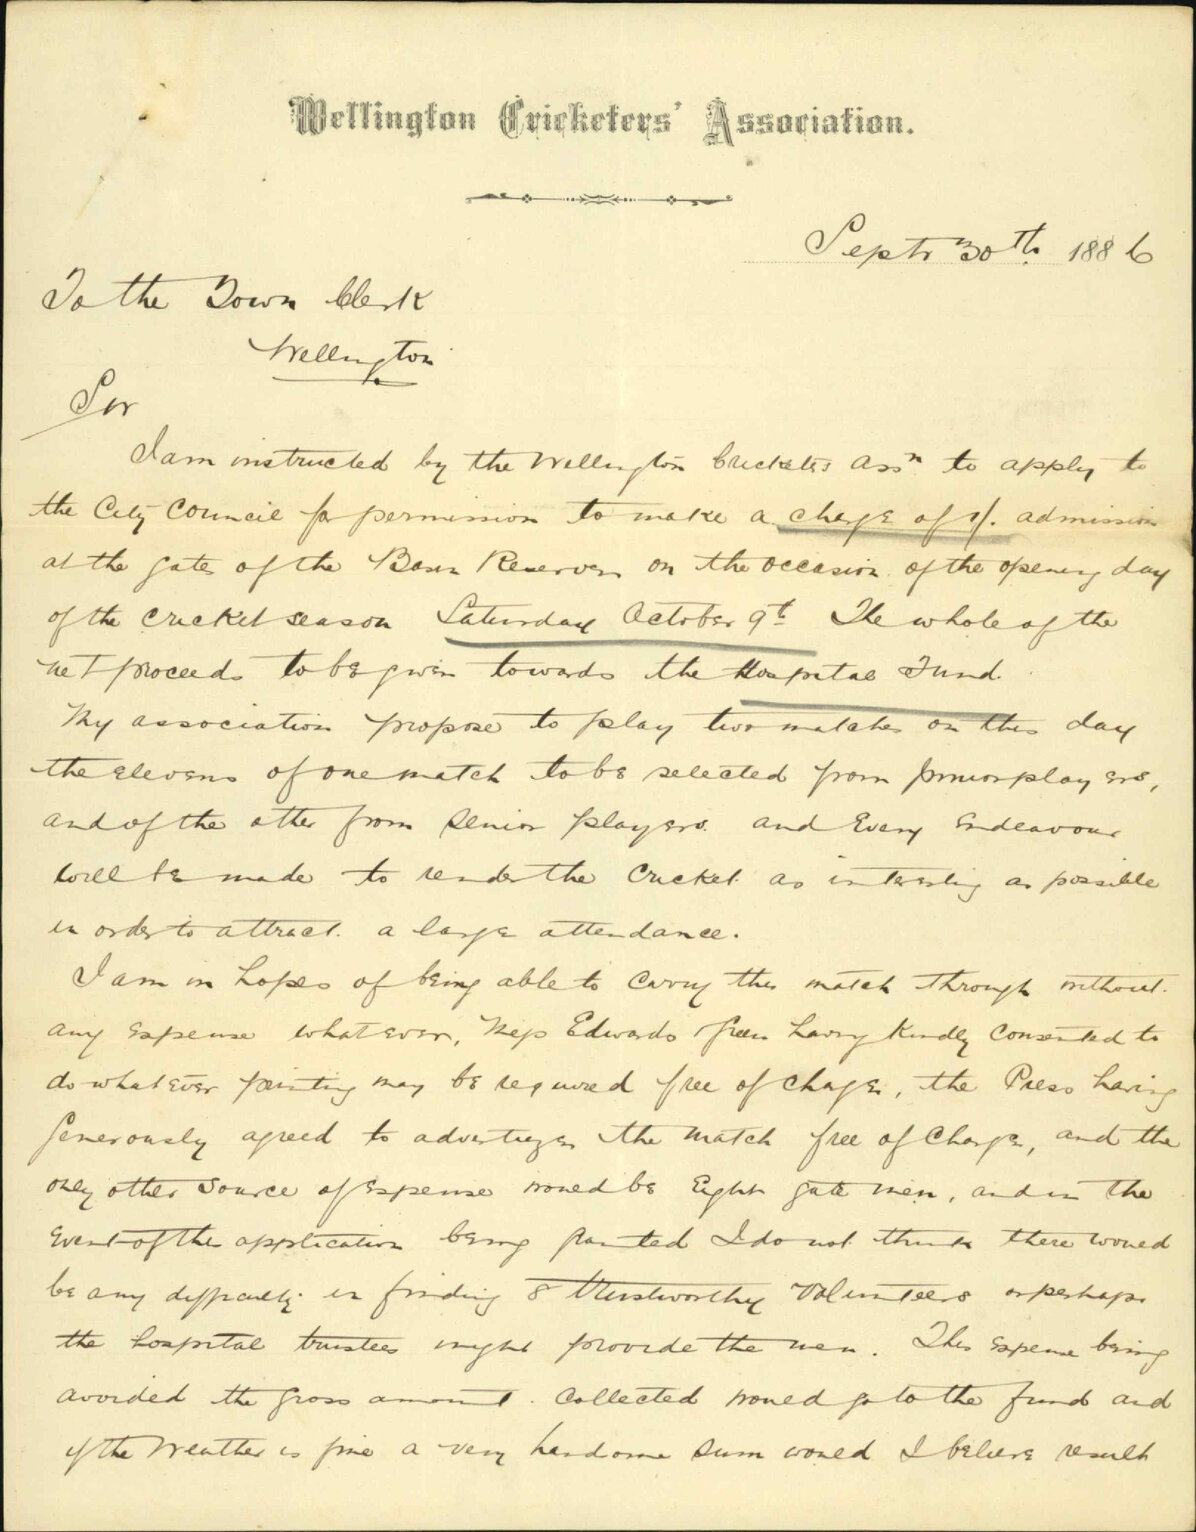 Wellington Cricketers' Association.
Septr 30th 1886
To the Town Clerk
Wellington
Sir
I am instructed by the Wellington Cricketers Assn to apply to
the City Council for permission to make a charge of 1/. admission
at the gates of the Basin Reserve on the occasion of the opening day
of the cricket season Saturday October 9th The whole of the
net proceeds to be given towards the Hospital Fund.
My association propose to play two matches on this day
the elevens of one match to be selected from junior players,
and of the other from senior players. and every endeavour
will be made to render the cricket as interesting as possible
in order to attract a large attendance.
I am in hopes of being able to carry this match through without
any expense whatever, Messrs Edwards Green having kindly consented to
do whatever printing may be required free of charge, the Press having
generously agreed to advertize the match free of charge, and the
only other source of expense would be eight gate men, and in the
event of the application being granted I do not think there would
be any difficulty in finding 8 trustworthy volunteers or perhaps
the hospital trustees might provide the men. This expense being
avoided the gross amount collected would go to the fund and
if the weather is fine a very handsome sum would I believe result